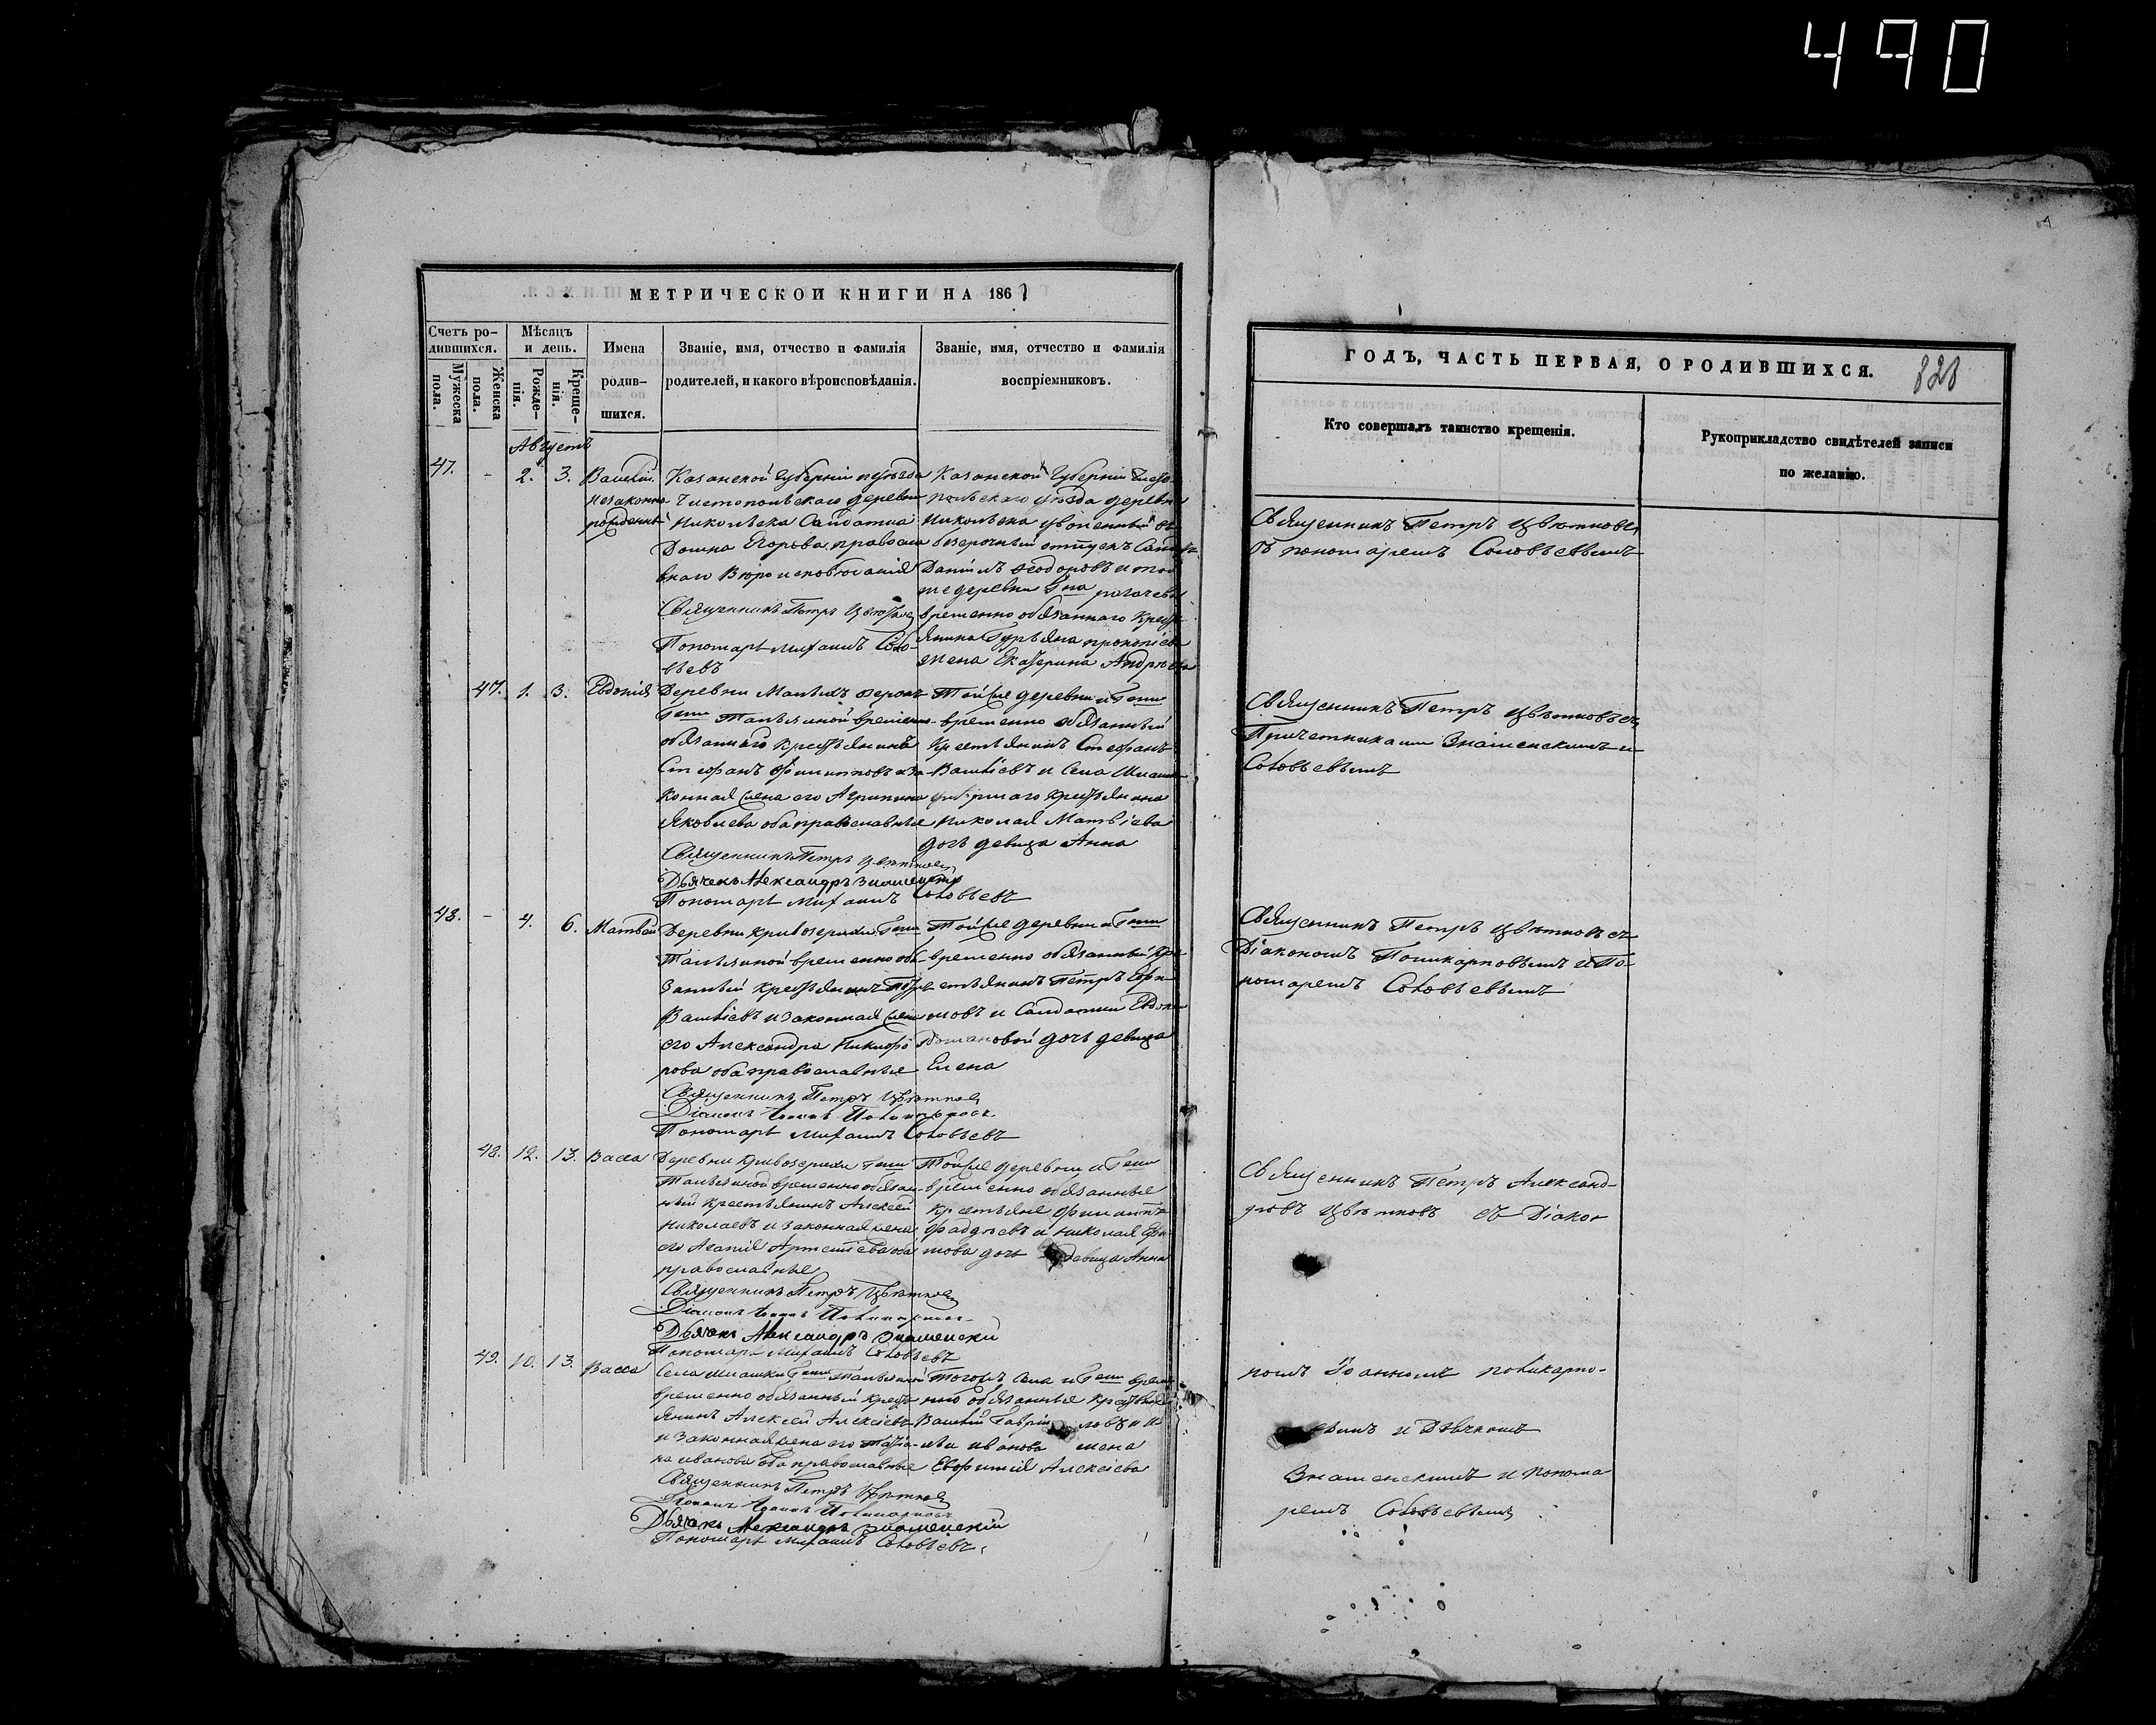 490
МЕТРИЧЕСКОЙ КНИГИ НА 186
Счетъ ро-
дившихся.
Мужеска
пола.
Женска
пола.
Мѣсяцъ
и день.
Рожде-
нія.
Креще-
нія.
Имена
родив-
шихся.
Званіе, имя, отчество и фамилія
родителей, и какого вѣроисповѣданія.
Званіе, имя, отчество и фамилія
воспріемниковъ.
Августъ
47. - 2. 3. Василій
незаконно-
рожденный
Казанской Губерніи уѣзда
Чистопольскаго деревни
Никольска Солдатка
Домна Егорова, правосла
внаго Вѣроисповѣданія
Священникъ Петръ Цвѣтковъ
Пономарь Михаилъ Соло-
вьевъ
Казанской Губерніи Чисто-
польскаго уѣзда деревни
Никольска уволенный въ
безсрочный отпускъ Солдатъ
Даніилъ Ѳеодоровъ и той
же деревни Гна
временно обязаннаго Крест
янина Гурьяна Прокопіева
жена Екатерина Андреева
47. 1. 3. Евдокія
Деревни Малыхъ
Гжи временно-
обязаннаго Крестьянина
Стефанъ Филипповъ и За-
конная жена его Агрипина
Яковлева оба православные
Священникъ Петръ Цвѣтковъ
Дьячекъ Александръ Знаменскій
Пономарь Михаилъ Соловьевъ
Той же деревни и Гжи
временно обязанный
Крестьянинъ Стефанъ
Васильевъ и Села
крестьянина
Николая Матвѣева
дочь девица Анна
48. - 4. 6. Матвей
Деревни Гжи
временно обя-
занный Крестьянинъ Петръ
Васильевъ и законная жена
его Александра Никифо
рова оба православные
Священникъ Петръ Цвѣтковъ
Діаконъ Іоаннъ Поликарповъ
Пономарь Михаилъ Соловьевъ
Той же деревни и Гжи
временно обязанный Кре-
стьянинъ Петръ Ефи-
мовъ и Солдатки
дочь девица
Елена
48. 12. 13. Васса
Деревни Гжи
временно обязан-
ный Крестьянинъ Алексей
Николаевъ и законная жена
его Агапія Артеміева оба
православные
Священникъ Петръ Цвѣтковъ
Діаконъ Іоаннъ Поликарповъ
Дьячекъ Александръ Знаменскій
Пономарь Михаилъ Соловьевъ
Той же деревни и Гжи
временно обязанные
Крестьяне Филиппъ
Фаддѣевъ и Николая Ефи
мова дочь девица Анна
49. 10. 13. Васса
Села Гжи
временно обязанный Крест
янинъ Алексей Алексѣевъ
и законная жена его Татія-
на Иванова оба православные
Священникъ Петръ Цвѣтковъ
Діаконъ Іоаннъ Поликарповъ
Дьячекъ Александръ Знаменскій
Пономарь Михаилъ Соловьевъ
Тогожъ Села и Гжи време
нно обязанные Крестьяне
Василій Гаврииловъ и
Иванова жена
Евфимія Алексѣева
ГОДЪ, ЧАСТЬ ПЕРВАЯ, О РОДИВШИХСЯ.
828
Кто совершалъ таинство крещенія.
Рукоприкладство свидѣтелей записи
по желанію.
Священникъ Петръ Цвѣтковъ
съ пономаремъ Соловьевымъ
Священникъ Петръ Цвѣтковъ съ
Причетниками Знаменскимъ и
Соловьевымъ
Священникъ Петръ Цвѣтковъ съ
Діакономъ Поликарповымъ и По-
номаремъ Соловьевымъ
Священникъ Петръ Александ-
ровъ Цвѣтковъ съ Діако
номъ Іоанномъ Поликарпо-
вымъ и Дьячкомъ
Знаменскимъ и Понома
ремъ Соловьевымъ